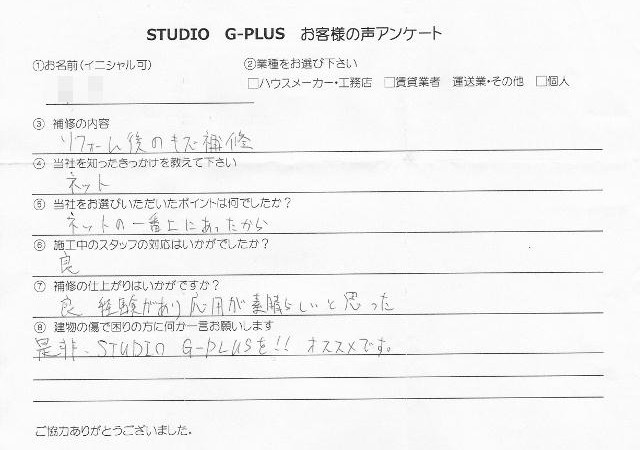 STUDIO G-PLUS お客様の声アンケート
①お名前(イニシャル可) ②業種をお選び下さい
□ハウスメーカー・工務店 □賃貸業者 運送業・その他 □個人
③ 補修の内容
リフォーム後のキズ補修
④ 当社を知ったきっかけを教えて下さい
ネット
⑤ 当社をお選びいただいたポイントは何でしたか?
ネットの一番上にあったから
⑥ 施工中のスタッフの対応はいかがでしたか?
良
⑦ 補修の仕上がりはいかがですか?
良 経験があり応用が素晴らしいと思った
⑧ 建物の傷で困りの方に何か一言お願いします
是非、STUDIO G-PLUSを!! オススメです。
ご協力ありがとうございました.